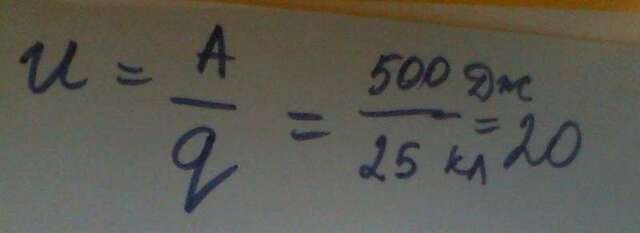 U = A / q = 500 Дж / 25 Кл = 20